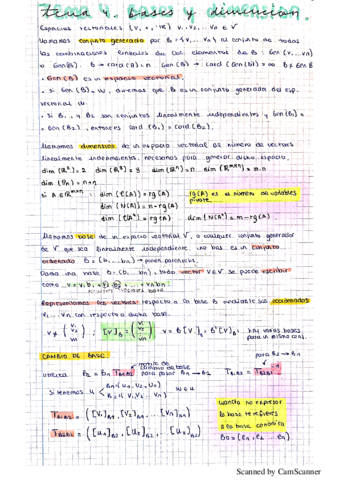 Tema 4. Bases y dimensión.
Espacios vectoriales (V, +, ·K) v₁, v₂, ... vn ∈ V
Llamamos conjunto generado por B={v₁, ... vn} al conjunto de todas
las combinaciones lineales de los elementos de B: Gen(v₁...vn)
o Gen(B). B → card(B) = n Gen(B) → card(Gen(B)) = ∞ B ⊂ Gen B
· Gen(B) es un espacio vectorial.
· si Gen(B) = W, diremos que B es un conjunto generador del esp.
vectorial W.
· Si B₁ y B₂ son conjuntos linealmente independientes y Gen(B₁) =
= Gen(B₂), entonces card(B₁) = card(B₂).
Llamamos dimensión de un espacio vectorial al número de vectores
linealmente independientes, necesarios para generar dicho espacio.
dim(ℝ²) = 2 dim(ℝ³) = 3 dim(ℝⁿ) = n dim(ℝᵐˣⁿ) = m·n
dim(Pn) = n+1
si A ∈ ℝᵐˣⁿ dim(C(A)) = rg(A)
rg(A) es el número de variables
pivote
dim(N(A)) = n - rg(A)
dim(C(Aᵗ)) = rg(A) dim(N(Aᵗ)) = m - rg(A)
Llamamos base de un espacio vectorial V, a cualquier conjunto generador
de V que sea linealmente independiente. Una base es un conjunto
ordenado B = (b₁, ... bn) → ponen paréntesis.
Dada una base B = (b₁, ... bn), todo vector v ∈ V se puede escribir
como v = v₁b₁ + v₂b₂ + ... + vnbn
Representaremos los vectores respecto a la base B mediante sus coordenadas
v₁, ... vn con respecto a dicha base.
[v]B = v = B[v]B
Hay varias bases
para un mismo conj.
CAMBIO DE BASE
matriz de
cambio de base
para B₂ → B₁
utiliza B₂ = B₁ TB₁B₂ para pasar B₁ → B₂
Si tenemos B₁ (u₁, u₂, u₃)
TB₁B₂ = ([v₁]B₁, [v₂]B₁, ... [vn]B₁)
TB₂B₁ = ([u₁]B₂, [u₂]B₂, ... [u₃]B₂)
cuando no expresan
la base te refieres
a la base canónica
B₀ = (e₁, e₂ ... en)
Scanned by CamScanner